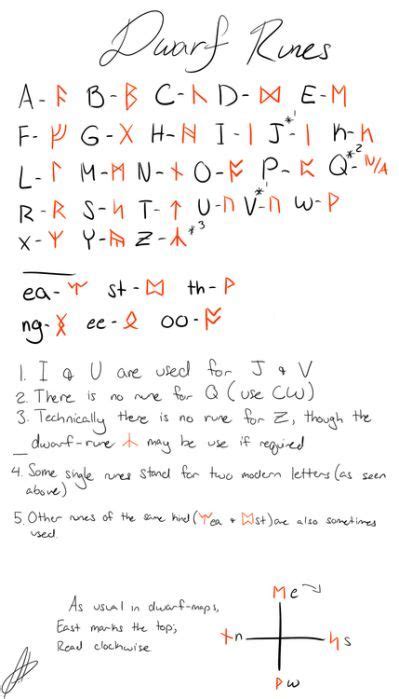 Dwarf Runes
A-ᚨ B-ᛒ C-ᚳ D-ᛞ E-ᛖ
F-ᚠ G-ᚷ H-ᚻ I-ᛁ J*¹-ᛁ K-ᚴ
L-ᛚ M-ᛗ N-ᚾ O-ᛟ P-ᛈ Q*²-N/A
R-ᚱ S-ᛋ T-ᛏ U-ᚢ V*¹-ᚢ W-ᚹ
X-ᛉ Y-ᚣ Z-ᛣ*³
ea-ᛠ st-ᛥ th-ᚦ
ng-ᛝ ee-ᛟ oo-ᚩ
1. I & U are used for J & V
2. There is no rune for Q (use CW)
3. Technically there is no rune for Z, though the
dwarf-rune ᛣ may be use if required
4. Some single runes stand for two modern letters (as seen
above)
5. Other runes of the same kind (ᛠ ea & ᛥ st) are also sometimes
used.
As usual in dwarf-maps,
East marks the top;
Read clockwise
ᛖ e
ᚾ n
ᛋ s
ᚹ w